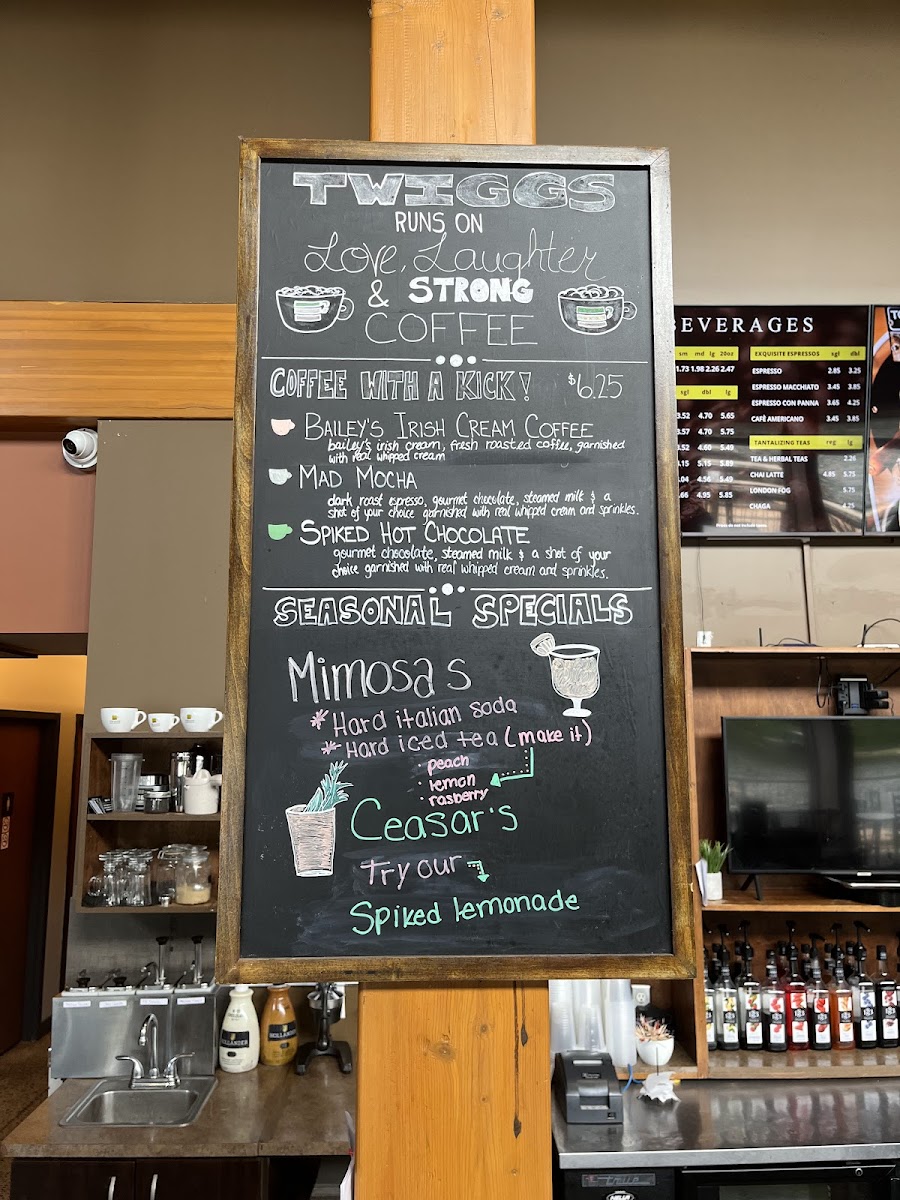 TWIGGS
RUNS ON
Love, Laughter
& STRONG
COFFEE
COFFEE WITH A KICK! $6.25
BAILEY'S IRISH CREAM COFFEE
bailey's irish cream, fresh roasted coffee, garnished
with real whipped cream
MAD MOCHA
dark roast espresso, gourmet chocolate, steamed milk & a
shot of your choice garnished with real whipped cream and sprinkles.
SPIKED HOT CHOCOLATE
gourmet chocolate, steamed milk & a shot of your
choice garnished with real whipped cream and sprinkles.
SEASONAL SPECIALS
Mimosas
* Hard italian soda
* Hard iced tea (make it)
· peach
· lemon
· rasberry
Ceasar's
Try our
Spiked lemonade
BEVERAGES
sm md lg 20oz
1.73 1.98 2.26 2.47
sgl dbl lg
3.52 4.70 5.65
3.57 4.70 5.75
4.60 5.49
5.15 5.89
4.56 5.49
4.95 5.85
EXQUISITE ESPRESSOS sgl dbl
ESPRESSO 2.85 3.25
ESPRESSO MACCHIATO 3.45 3.85
ESPRESSO CON PANNA 3.65 4.25
CAFÉ AMERICANO 3.45 3.85
TANTALIZING TEAS reg lg
TEA & HERBAL TEAS 2.26
CHAI LATTE 4.85 5.75
LONDON FOG 5.75
CHAGA 4.25
HOLLANDER
HOLLANDER